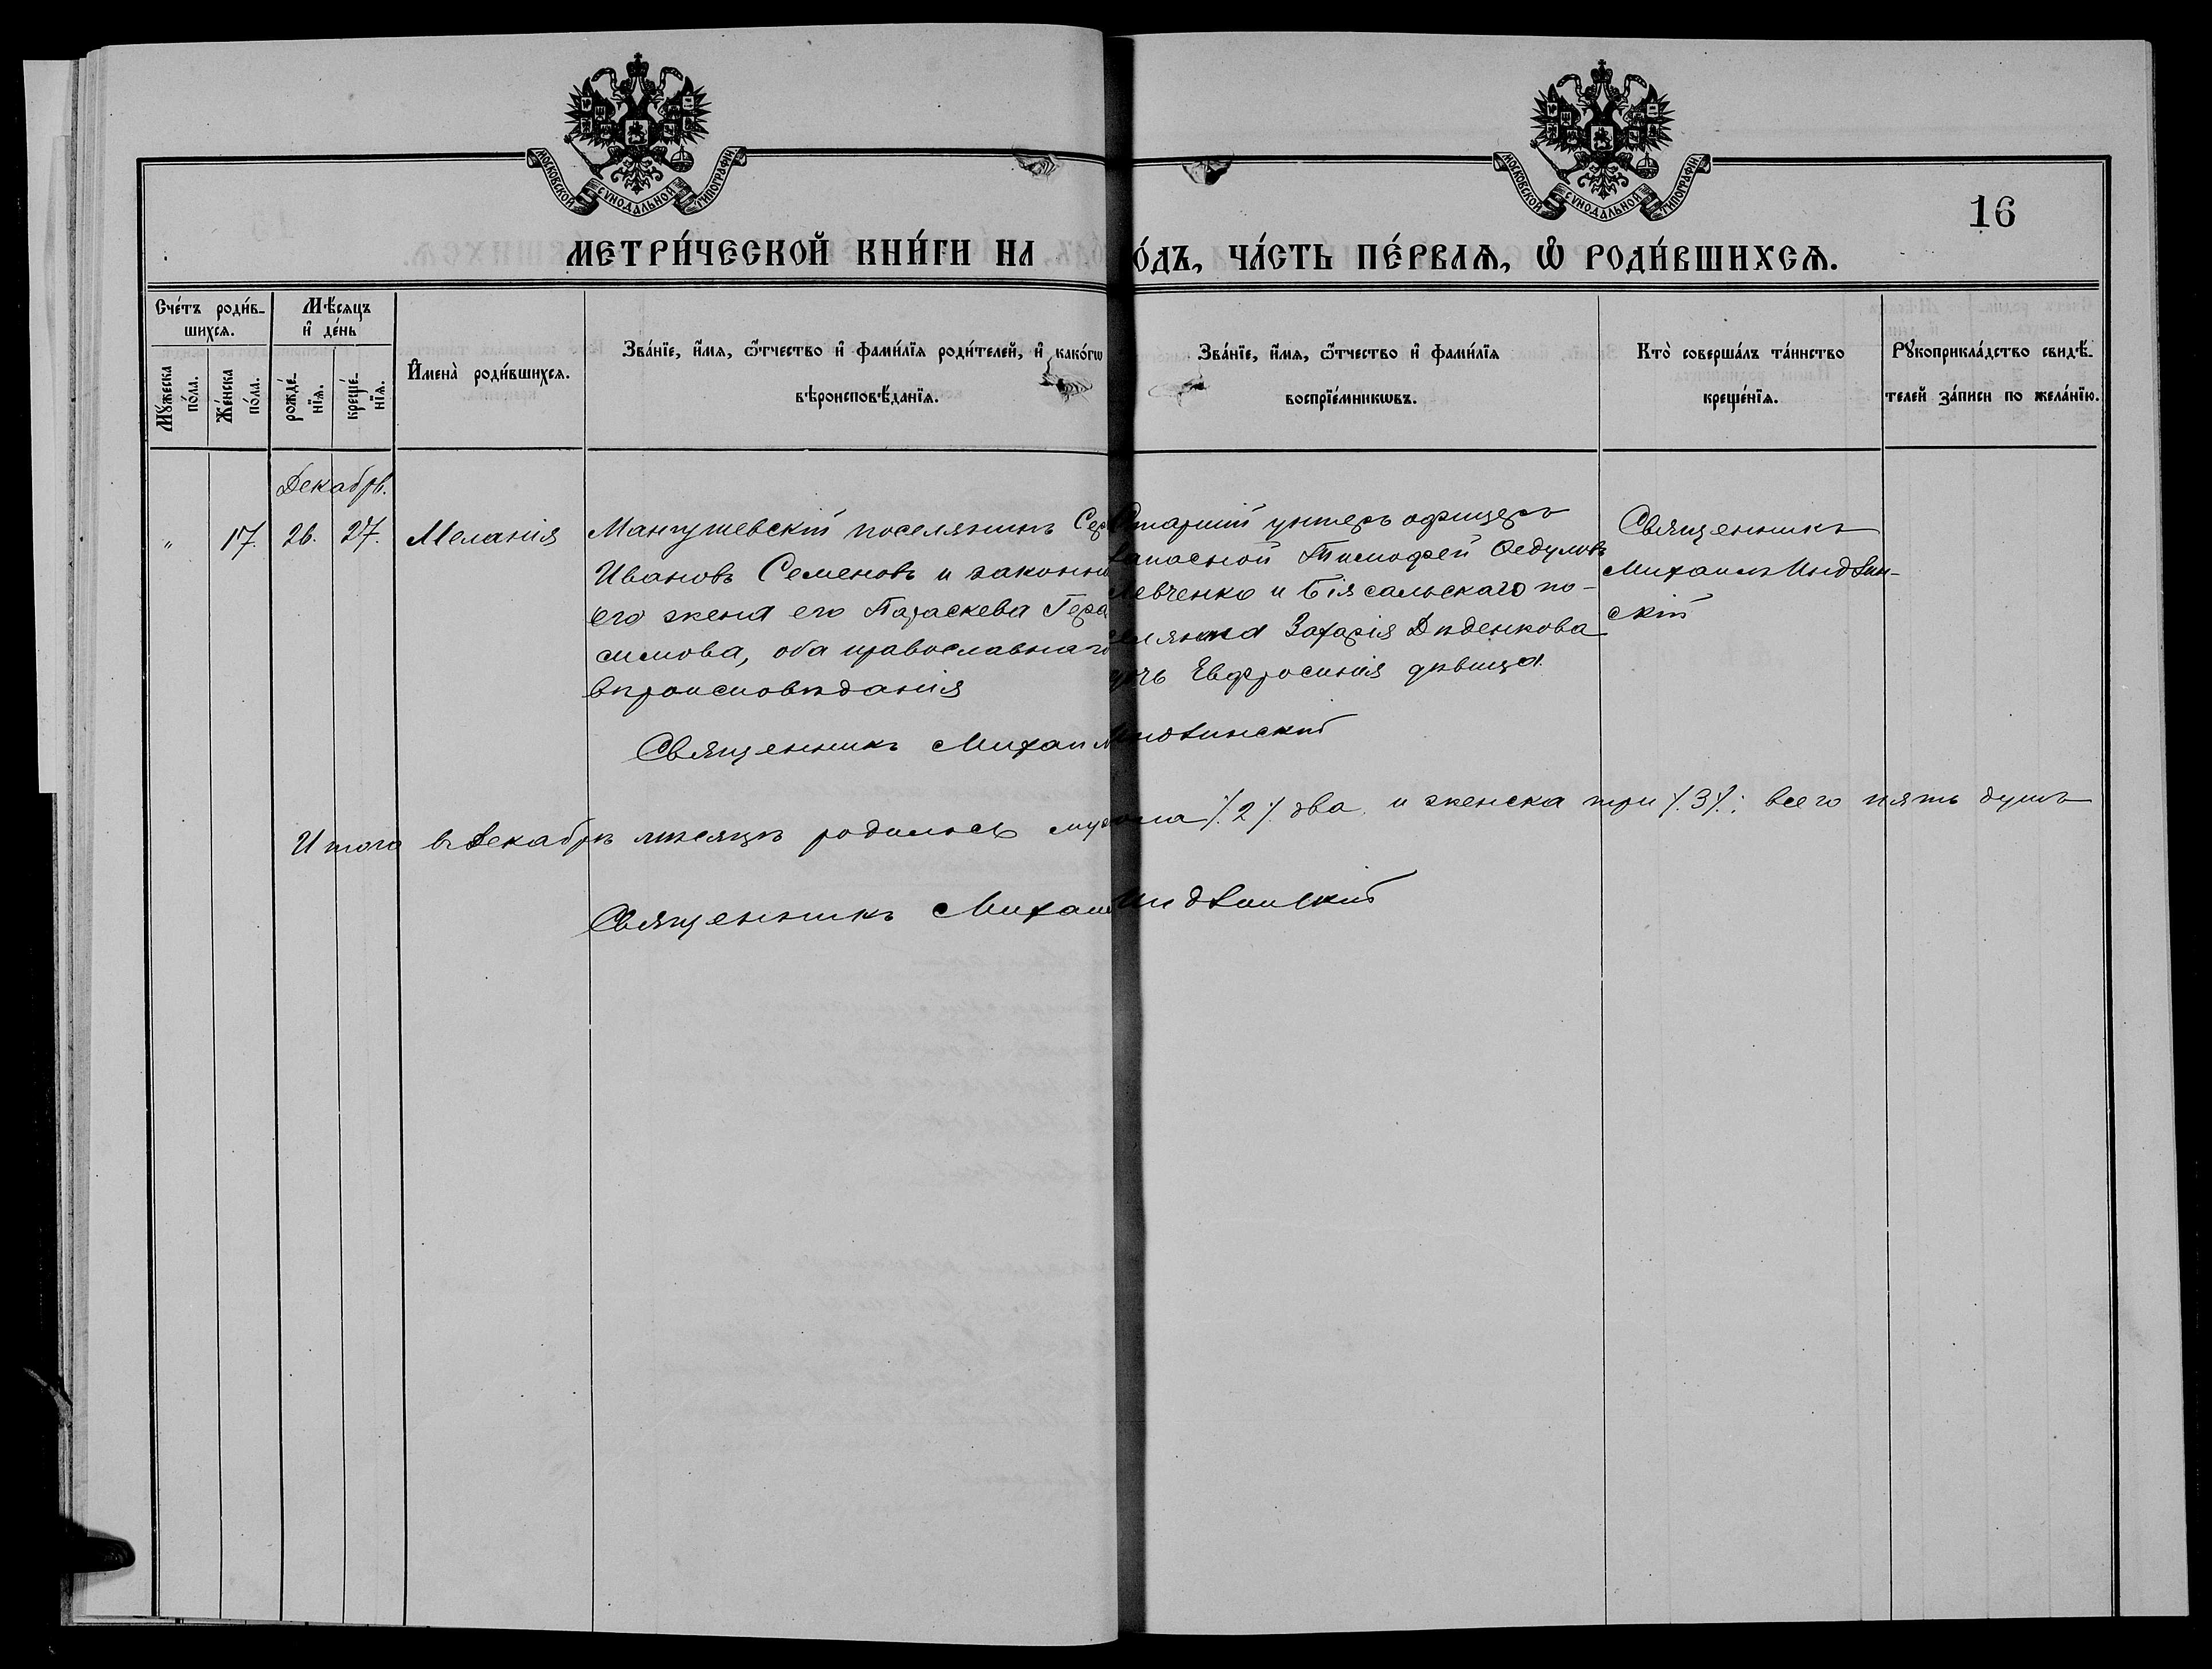 МОСКОВСКОЙ СѴНОДАЛЬНОЙ ТИПОГРАФІИ
МОСКОВСКОЙ СѴНОДАЛЬНОЙ ТИПОГРАФІИ
16
МЕТРИ́ЧЕСКОЙ КНИ́ГИ НА о́дъ, ЧА́СТЬ ПЕ́РВАѦ, Ѡ РОДИ́ВШИХСѦ.
Сче́тъ роди́в-
шихсѧ.
Мꙋ́жеска
по́ла.
Же́нска
по́ла.
Мѣ́сѧцъ
и҆ де́нь
рожде́-
нїѧ.
креще́-
нїѧ.
И҆мена̀ роди́вшихсѧ.
Зва́нїе, и҆́мѧ, ѻ҆́тчество и҆ фами́лїѧ роди́телей, и҆ како́гѡ
вѣроисповѣ́данїѧ.
Зва́нїе, и҆́мѧ, ѻ҆́тчество и҆ фами́лїѧ
воспрїе́мникѡвъ.
Кто̀ соверша́лъ та́инство
креще́нїѧ.
Рꙋкоприкла́дство свидѣ́-
телей за́писи по жела́нїю.
Декабрь.
" 17. 26. 27. Меланія
Мангушевскій поселянинъ Сер
Ивановъ Семеновъ и законн
его жена его Параскева Гера
симова, оба православнаго
вѣроисповѣданія
Старшій унтеръ офицеръ
запасной Тимофей Федуловъ
Левченко и Біясальскаго по-
селянина Захарія Дѣденкова
дочь Евфросинія дѣвица.
Священникъ
Михаилъ Индзин-
скій
Священникъ Михаилъ Индзинскій
Итого въ Декабрѣ мѣсяцѣ родилось муж пола /. 2 /. два. и женска три /. 3 /.; всего пять душъ
Священникъ Михаилъ Индзинскій